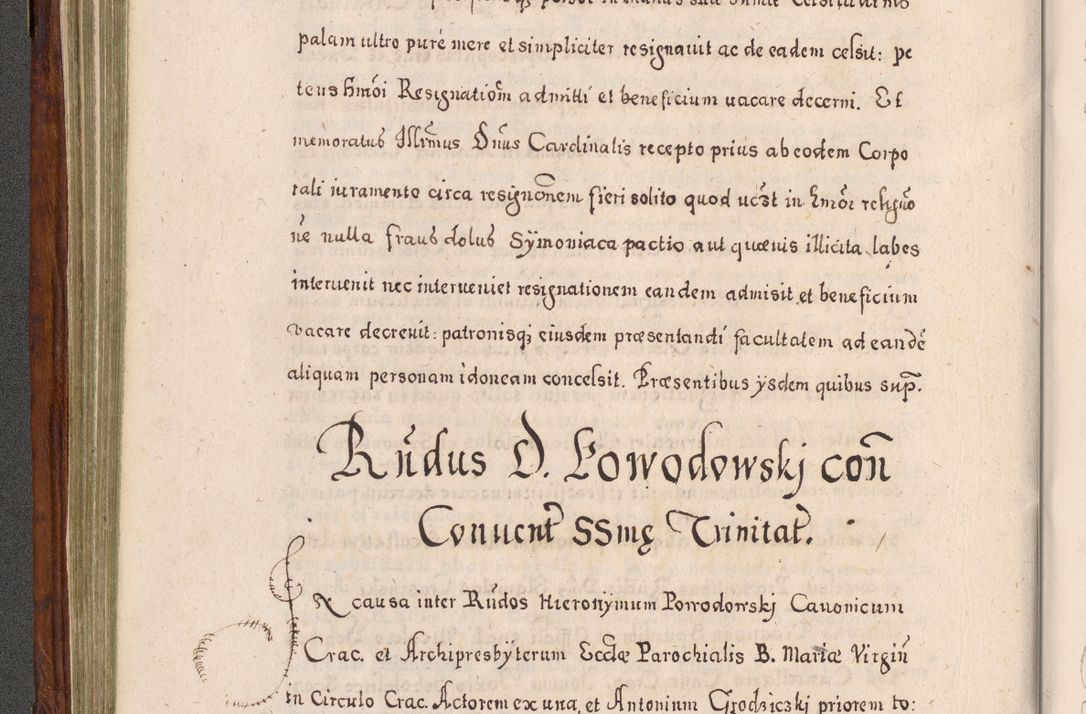 palam ultro puré mere et simpliciter resignauit ac de eadem celsit: pe
tens hmõi Resignatioñ admitti et beneficium uacare decerni. Et
memoratus Illrm̃us Dñus Cardinalis recepto prius ab eodem Corpo
rali iuramento circa resignõnem fieri solito quod
ne nulla fraus dolus Sÿmoniaca pactio aut quæuis illicita labes
interuenit nec interueniet resignationem eandem admisit et beneficium
vacare decreuit: patronisq; eiusdem præsentandi facultatem ad eandẽ
aliquam personam idoneam concessit. Præsentibus ysdem quibus sup̃.
Rñdus D. Powodowskj coñ
Conuent̃ SSmę Trinitat̃.
causa inter Rñdos Hieronÿmum Powodowskj Canonicum
Crac. et Archipresbÿterum Eccl̃æ Parochialis B. Mariæ Virgiñ
in Circulo Crac. Actorem ex una, et Antonium Grodziczkj priorem to: